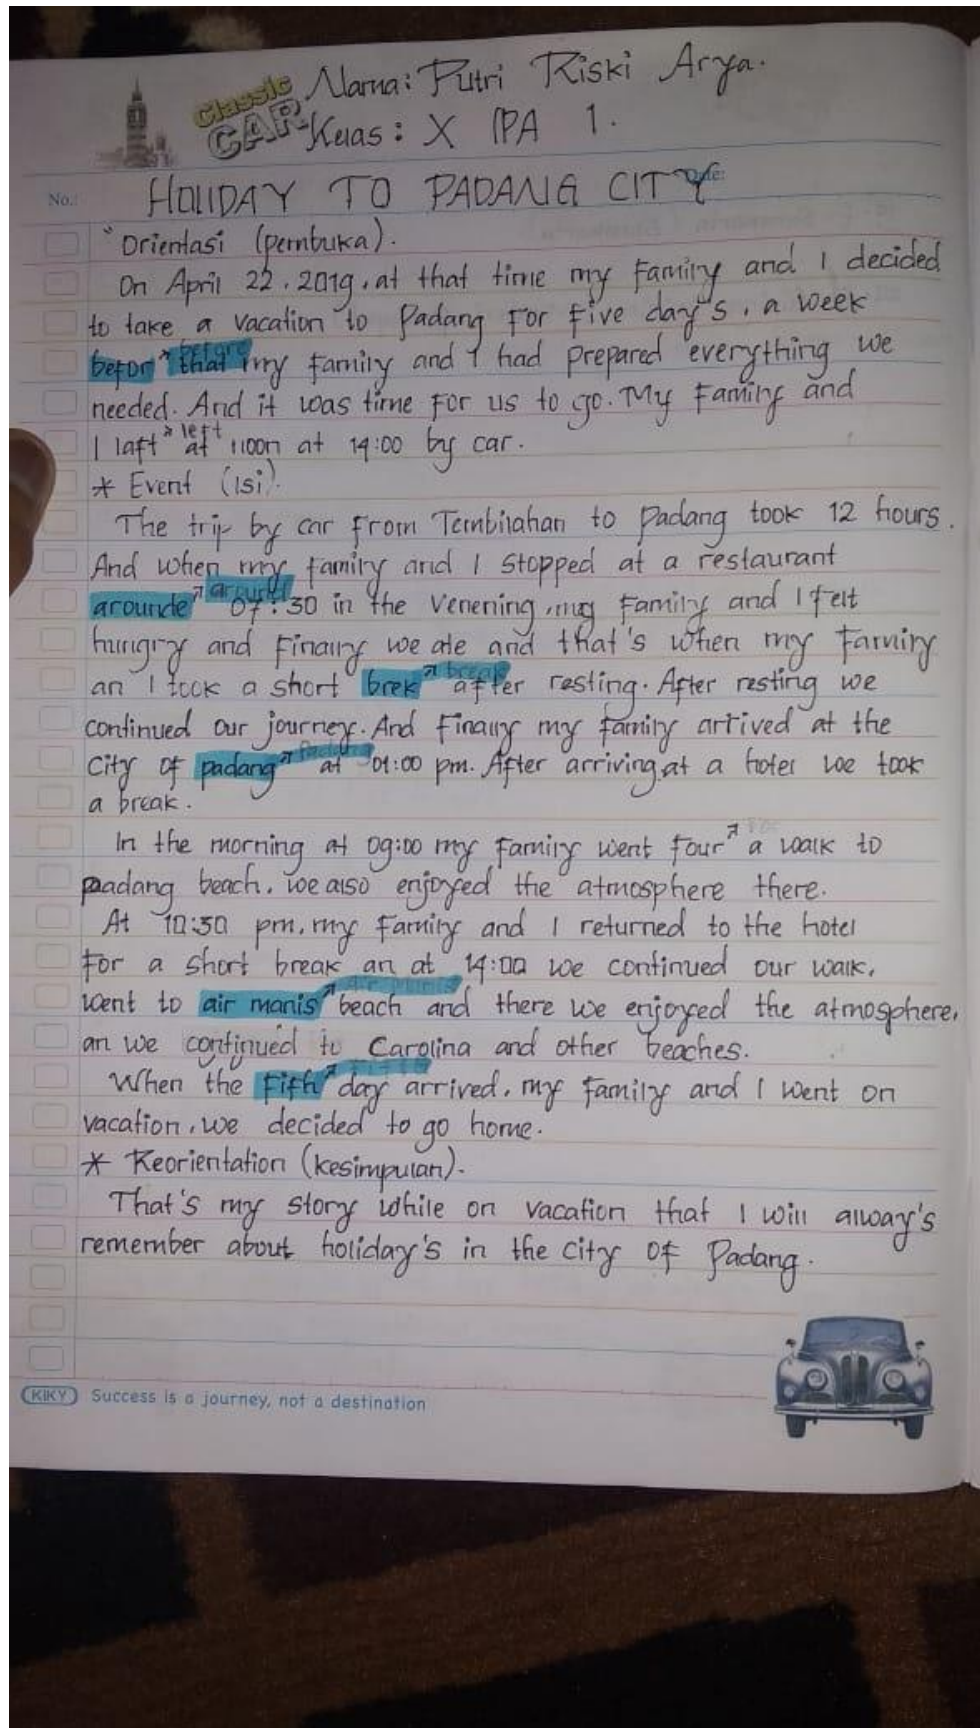 Classic CAR Nama: Putri Riski Arya.
Kelas: X IPA 1.
No.: HOLIDAY TO PADANG CITY Date:
* Orientasi (pembuka).
On April 22, 2019, at that time my family and I decided
to take a vacation to Padang for five day's, a week
befor ↗ before that my family and I had prepared everything we
needed. And it was time for us to go. My family and
I laft ↗ left at noon at 14:00 by car.
* Event (Isi).
The trip by car from Tembilahan to padang took 12 hours.
And when my family and I stopped at a restaurant
arounde ↗ around 07:30 in the Venening, my family and I felt
hungry and finally we ate and that's when my family
an I took a short brek ↗ break after resting. After resting we
continued our journey. And finally my family arrived at the
city of padang ↗ Padang at 01:00 pm. After arriving at a hotel we took
a break.
In the morning at 09:00 my family went four ↗ for a walk to
padang beach, we also enjoyed the atmosphere there.
At 10:30 pm, my family and I returned to the hotel
for a short break an at 14:00 we continued our walk,
went to air manis ↗ beach and there we enjoyed the atmosphere,
an we continued to Carolina and other beaches.
When the fifh ↗ day arrived, my family and I went on
vacation, we decided to go home.
* Reorientation (kesimpulan).
That's my story while on vacation that I will alway's
remember about holiday's in the city of Padang.
KIKY Success is a journey, not a destination